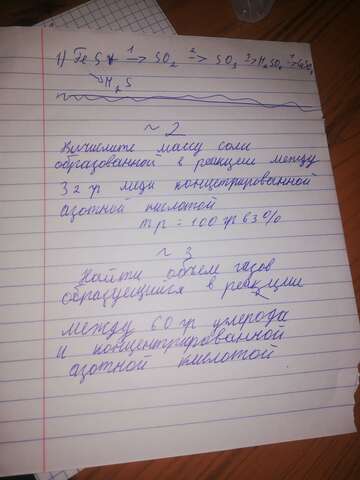 1) FeS → 1 SO2 → 2 SO3 → 3 H2SO4 → 4
H2S
~ 2
Вычислите массу соли
образованной в реакции между
32 гр меди концетрированной
азотной кислотой
mр = 100 гр 63%
~ 3
Найти объем газов
образующийся в реакции
между 60 гр углерода
и концентрированной
азотной кислотой